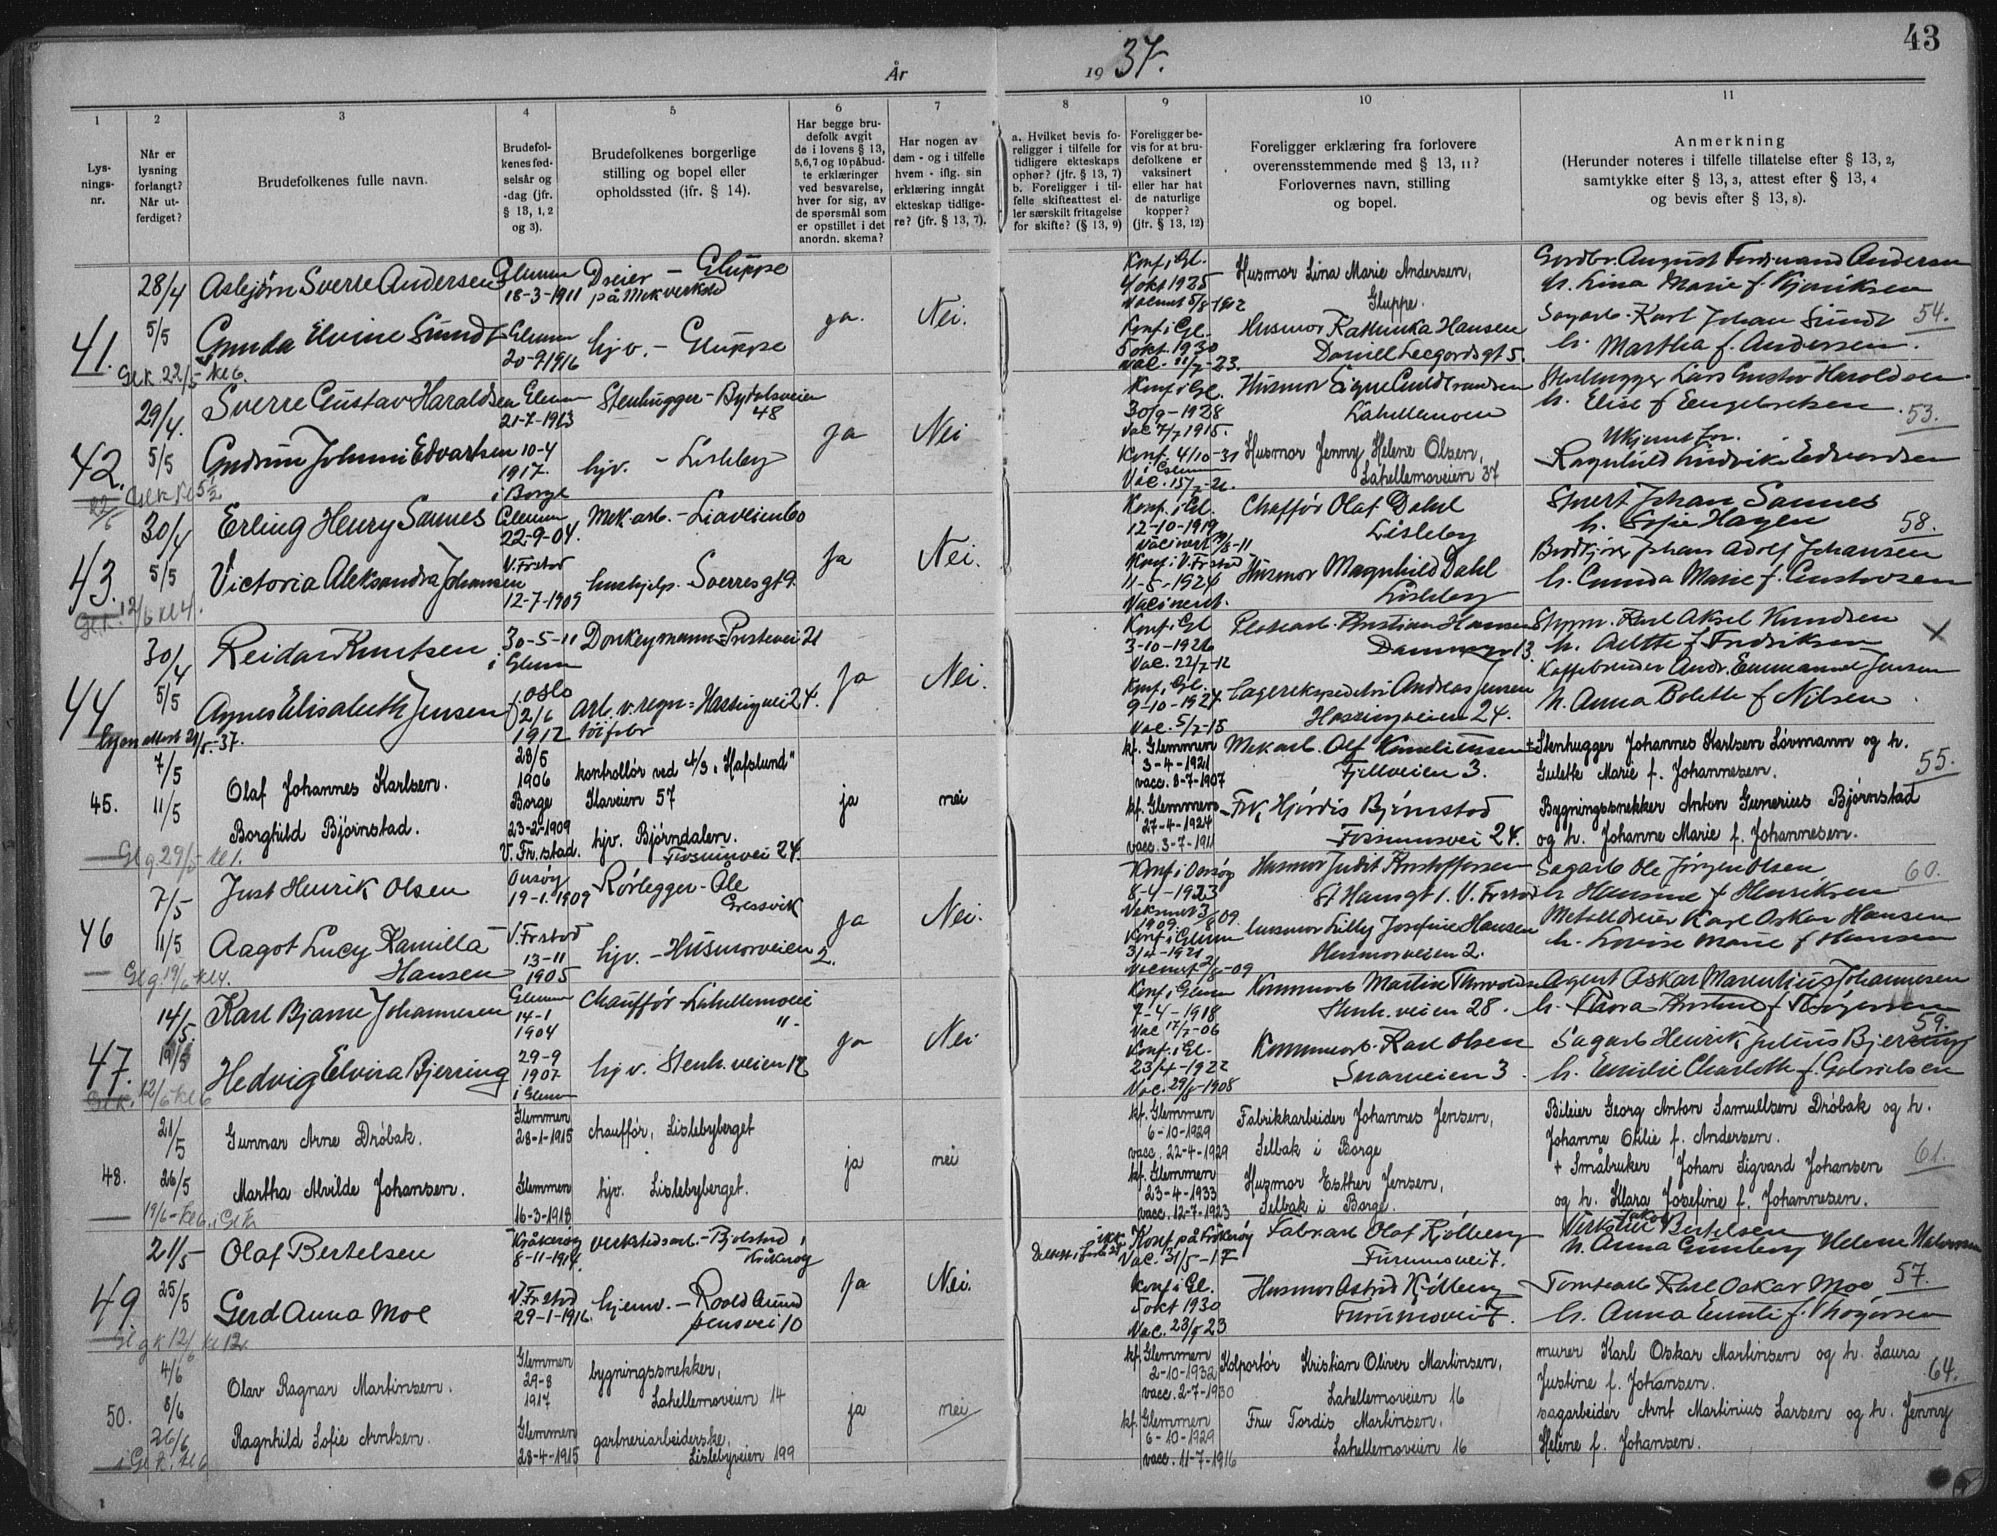 43
År 1937.
1
2
3
4
5
6
7
8
9
10
11
Lys-
nings-
nr.
Når er
lysning
forlangt?
Når ut-
ferdiget?
Brudefolkenes fulle navn.
Brudefol-
kenes fød-
selsår og
-dag (jfr.
§ 13, 1, 2
og 3).
Brudefolkenes borgerlige
stilling og bopel eller
opholdssted (jfr. § 14).
Har begge bru-
defolk avgit
de i lovens § 13,
5,6,7 og 10 påbud-
te erklæringer
ved besvarelse,
hver for sig, av
de spørsmål som
er opstillet i det
anordn. skema?
Har nogen av
dem - og i tilfelle
hvem - iflg. sin
erklæring inngått
ekteskap tidlige-
re? (jfr. § 13, 7).
a. Hvilket bevis fo-
religger i tilfelle for
tidligere ekteskaps
ophør? (jfr. § 13, 7)
b. Foreligger i til-
felle skifteattest el-
ler særskilt fritagelse
for skifte? (§ 13, 9)
Foreligger be-
vis for at bru-
defolkene er
vaksinert
eller har hat
de naturlige
kopper?
(jfr. § 13, 12)
Foreligger erklæring fra forlovere
overensstemmende med § 13, 11?
Forlovernes navn, stilling
og bopel.
Anmerkning
(Herunder noteres i tilfelle tillatelse efter § 13, 2,
samtykke efter § 13, 3, attest efter § 13, 4
og bevis efter § 13, 8).
41.
28/4
5/5
Asbjørn Sverre Andersen
Glemm
18-3-1911
Dreier - Gluppe
på Mek verksted
Gunda Elvine Sundt
Glemm
20-9 1916
hjv. - Gluppe
Gl.k 22/5 kl 6.
ja.
Nei.
Konf i Gl.
4 okt 1925
Husmor Lina Marie Andersen,
Gluppe.
Gårdbr. August Ferdinand Andersen
h. Lina Marie f.
Konf i Gl.
5 okt. 1930
Vac. 11/7-23.
Husmor Kathinka Hansen
Daniel Leegårdsgt 5.
Sagarb. Karl Johan Sundt
h. Martha f. Andersen.
54.
42.
29/4.
5/5
Sverre Gustav Haraldsen
Glemm
21-7-1913
Stenhugger - Bydalsveien
48
Gudrun Johanne Edvartsen
10-4
1917.
i Borge
hjv. - Lisleby
22/6 Gl.k kl 5½
ja
Nei
Konf i Gl.
30/9-1928
Vac 7/7 1915.
Husmor Signe Gulbrandsen
Lahellemoen
Stenhugger Lars Gustav Haraldsen
h. Elise f Engebretsen
53.
Konf. 4/10-31
i Glemm
Vac. 15/7-21.
Husmor Jenny Helene Olsen,
Lahellemoveien 37
Ukjent far.
Ragnhild Edvardsen
43.
30/4
5/5
Erling Henry Sannes
Glemm
22-9-04.
Mek. arb. - Liaveien 60
Victoria Aleksandra Johansen
V. Frstad
12-7-1909
hushjelp. Sverresgt 9.
Gl.k. 12/6 kl 4.
Ja
Nei.
Konf. i Gl.
12-10-1919
Chaffør Olaf Dahl
Lisleby
Johan Sannes
h. Sofie Hagen
58.
Konf i V. Frstad
11-5-1924
Vacineret.
Husmor Magnhild Dahl
Lisleby
Brødkjører Johan Adolf Johansen
h. Gunda Marie f. Gustavsen
44
30/4
5/5
Reidar Knutsen
30-5-11
i Glemm
Donkeymann - Prestevei 21
Agnes Elisabeth Jensen
f. Oslo
2/6
1912
arb. v. regn= Hassingvei 24.
tøifabr
Lysn attest 29/5-37.
Ja
Nei.
Konf i Gl
3-10-1926
Vac. 22/7-12
Kristian Hansen
Dammegr 13.
Styrm. Karl Aksel Knudsen
h. Alette f Fredriksen
X
Konf. i Gl.
9-10-1927
Vac. 5/7-15
Lagerekspeditør Andreas Jensen
Hassingveien 24.
Kaffebrenner Andr. Emmanuel Jensen
h. Anna Bolette f Nilsen
45.
7/5
11/5
Olaf Johannes Karlsen.
28/5
1906
Borge
kontrollør ved A/S "Hafslund"
Ilaveien 57
Borghild Bjørnstad.
23-2-1909
V. Fr.stad.
hjv. Bjørndalen.
Fossumvei 24.
Gl g. 29/5 kl 1.
ja
nei
kf. Glemmen
3-4-1921
vacc. 8-7-1907
Mek arb. Olf Kornelitussen
Fjellveien 3.
+ Stenhugger Johannes Karlsen Løvmann og h.
Gulette Marie f. Johannesen.
55.
kf. Glemmen
27-4-1924
vacc. 3-7-1911
Frk. Hjørdis Bjørnstad
Fossumsvei 24.
Bygningssnekker Anton Gunerius Bjørnstad
og h. Johanne Marie f. Johannesen.
46
7/5
11/5
Just Henrik Olsen
Onsøy
19-1-1909
Rørlegger - Ole
Gressvik
Aagot Lucy Kamilla
Hansen
V. Frstad
13-11
1905
hjv. - Husmorveien
2.
Gl g. 19/6 kl 4.
Ja
Nei.
Konf i Onsøy
8-4-1923
Husmor Judit Kristoffersen
St Hansgt 1. V. Frstad
Sagarb Ole Jørgen Olsen,
h. Hansine f Henriksen
60.
Konf i Glemm
3/4-1921
Husmor Lilly Josefine Hansen
Husmorveien 2.
Metalldreier Karl Oskar Hansen
h. Lovise Marie f Hansen
47.
14/5.
19/5
Karl Bjarne Johannesen
Glemm
14-1
1904
Chauffør - Lahellemovei
"-
Hedvig Elvira Bjerring
29-9
1907
i Glemm
hjv. Stenh. veien 12
Gl.k. 12/6 kl 6
Ja
Nei
Konf. i Glemm
7-4-1918
Vac 17/7-06
Kommarb Martin Thorvaldsen
Stenh. veien 28.
Agent Oskar Marentius Johannesen
h. Thora Kristine f Thøgersen
59.
Konf. i Gl.
23/4-1922
Vac. 29/6-1908
Kommarb. Karl Olsen
Snarveien 3.
Sagarb Henrik Julius Bjerring
h. Emilie Charlotte f. Gabrielsen
48.
21/5
26/5
Gunnar Arne Drøbak.
Glemmen
28-1-1915
chauffør, Lislebyberget
Martha Alvilde Johansen.
Glemmen
16-3-1918
hjv. Lislebyberget.
19/6 - kl 6 i Gl k
ja
nei
kf. Glemmen
6-10-1929
vacc. 22-4-1929
Fabrikkarbeider Johannes Jensen,
Selbak i Borge
Bileier Georg Anton Samuelsen Drøbak og h.
Johanne Otilie f. Andersen.
kf. Glemmen
23-4-1933
vacc. 12-7-1923
Husmor Esther Jensen,
Selbak i Borge.
+ Småbruker Johan Sigvard Johansen
og h. Klara Josefine f. Johannesen.
61.
49.
21/5
25/5
Olaf Bertelsen
Kråkerøy
8-11-1914.
verkstedsarb. - Bjølstad i
Kråkerøy
Gerd Anna Moe
V. Frstad
29-1-1916.
hjemv. - Roald Amund
sensvei 10
Gl g k 12/6 kl 12.
Ja
Nei.
ikke
Konf. på Kråkerøy
Vac. 31/5-17
Fabr. arb Olaf Kjølberg
Furumovei 7.
Bertelsen
h. Anna Gunborg Helene Halvorsen
57.
Konf i Gl.
5 okt 1930
Vac. 23/5 23
Husmor Astrid Kjølberg
Furumovei 7.
Tomtearb Karl Oskar Moe
h. Anna Emilie f. Thøgersen
50.
4/6
8/6
Olav Ragnar Martinsen.
Glemmen
29-8
1917
bygningssnekker,
Lahellemoveien 14
Ragnhild Sofie Arntsen.
Glemmen
28-4-1915
gartneriarbeiderske,
Lislebyveien 199
26/6
i Gl k. kl 6
ja
nei
kf. Glemmen
2-10-1932
vacc. 2-7-1930
Kolportør Kristian Oliver Martinsen,
Lahellemoveien 16
murer Karl Oskar Martinsen og h. Laura
Justine f. Johansen.
64.
kf. Glemmen
6-10-1929
vacc. 11-7-1916
Fru Tordis Martinsen.
Lahellemoveien 16
sagarbeider Arnt Martinius Larsen og h. Jenny
Helene f. Johansen.